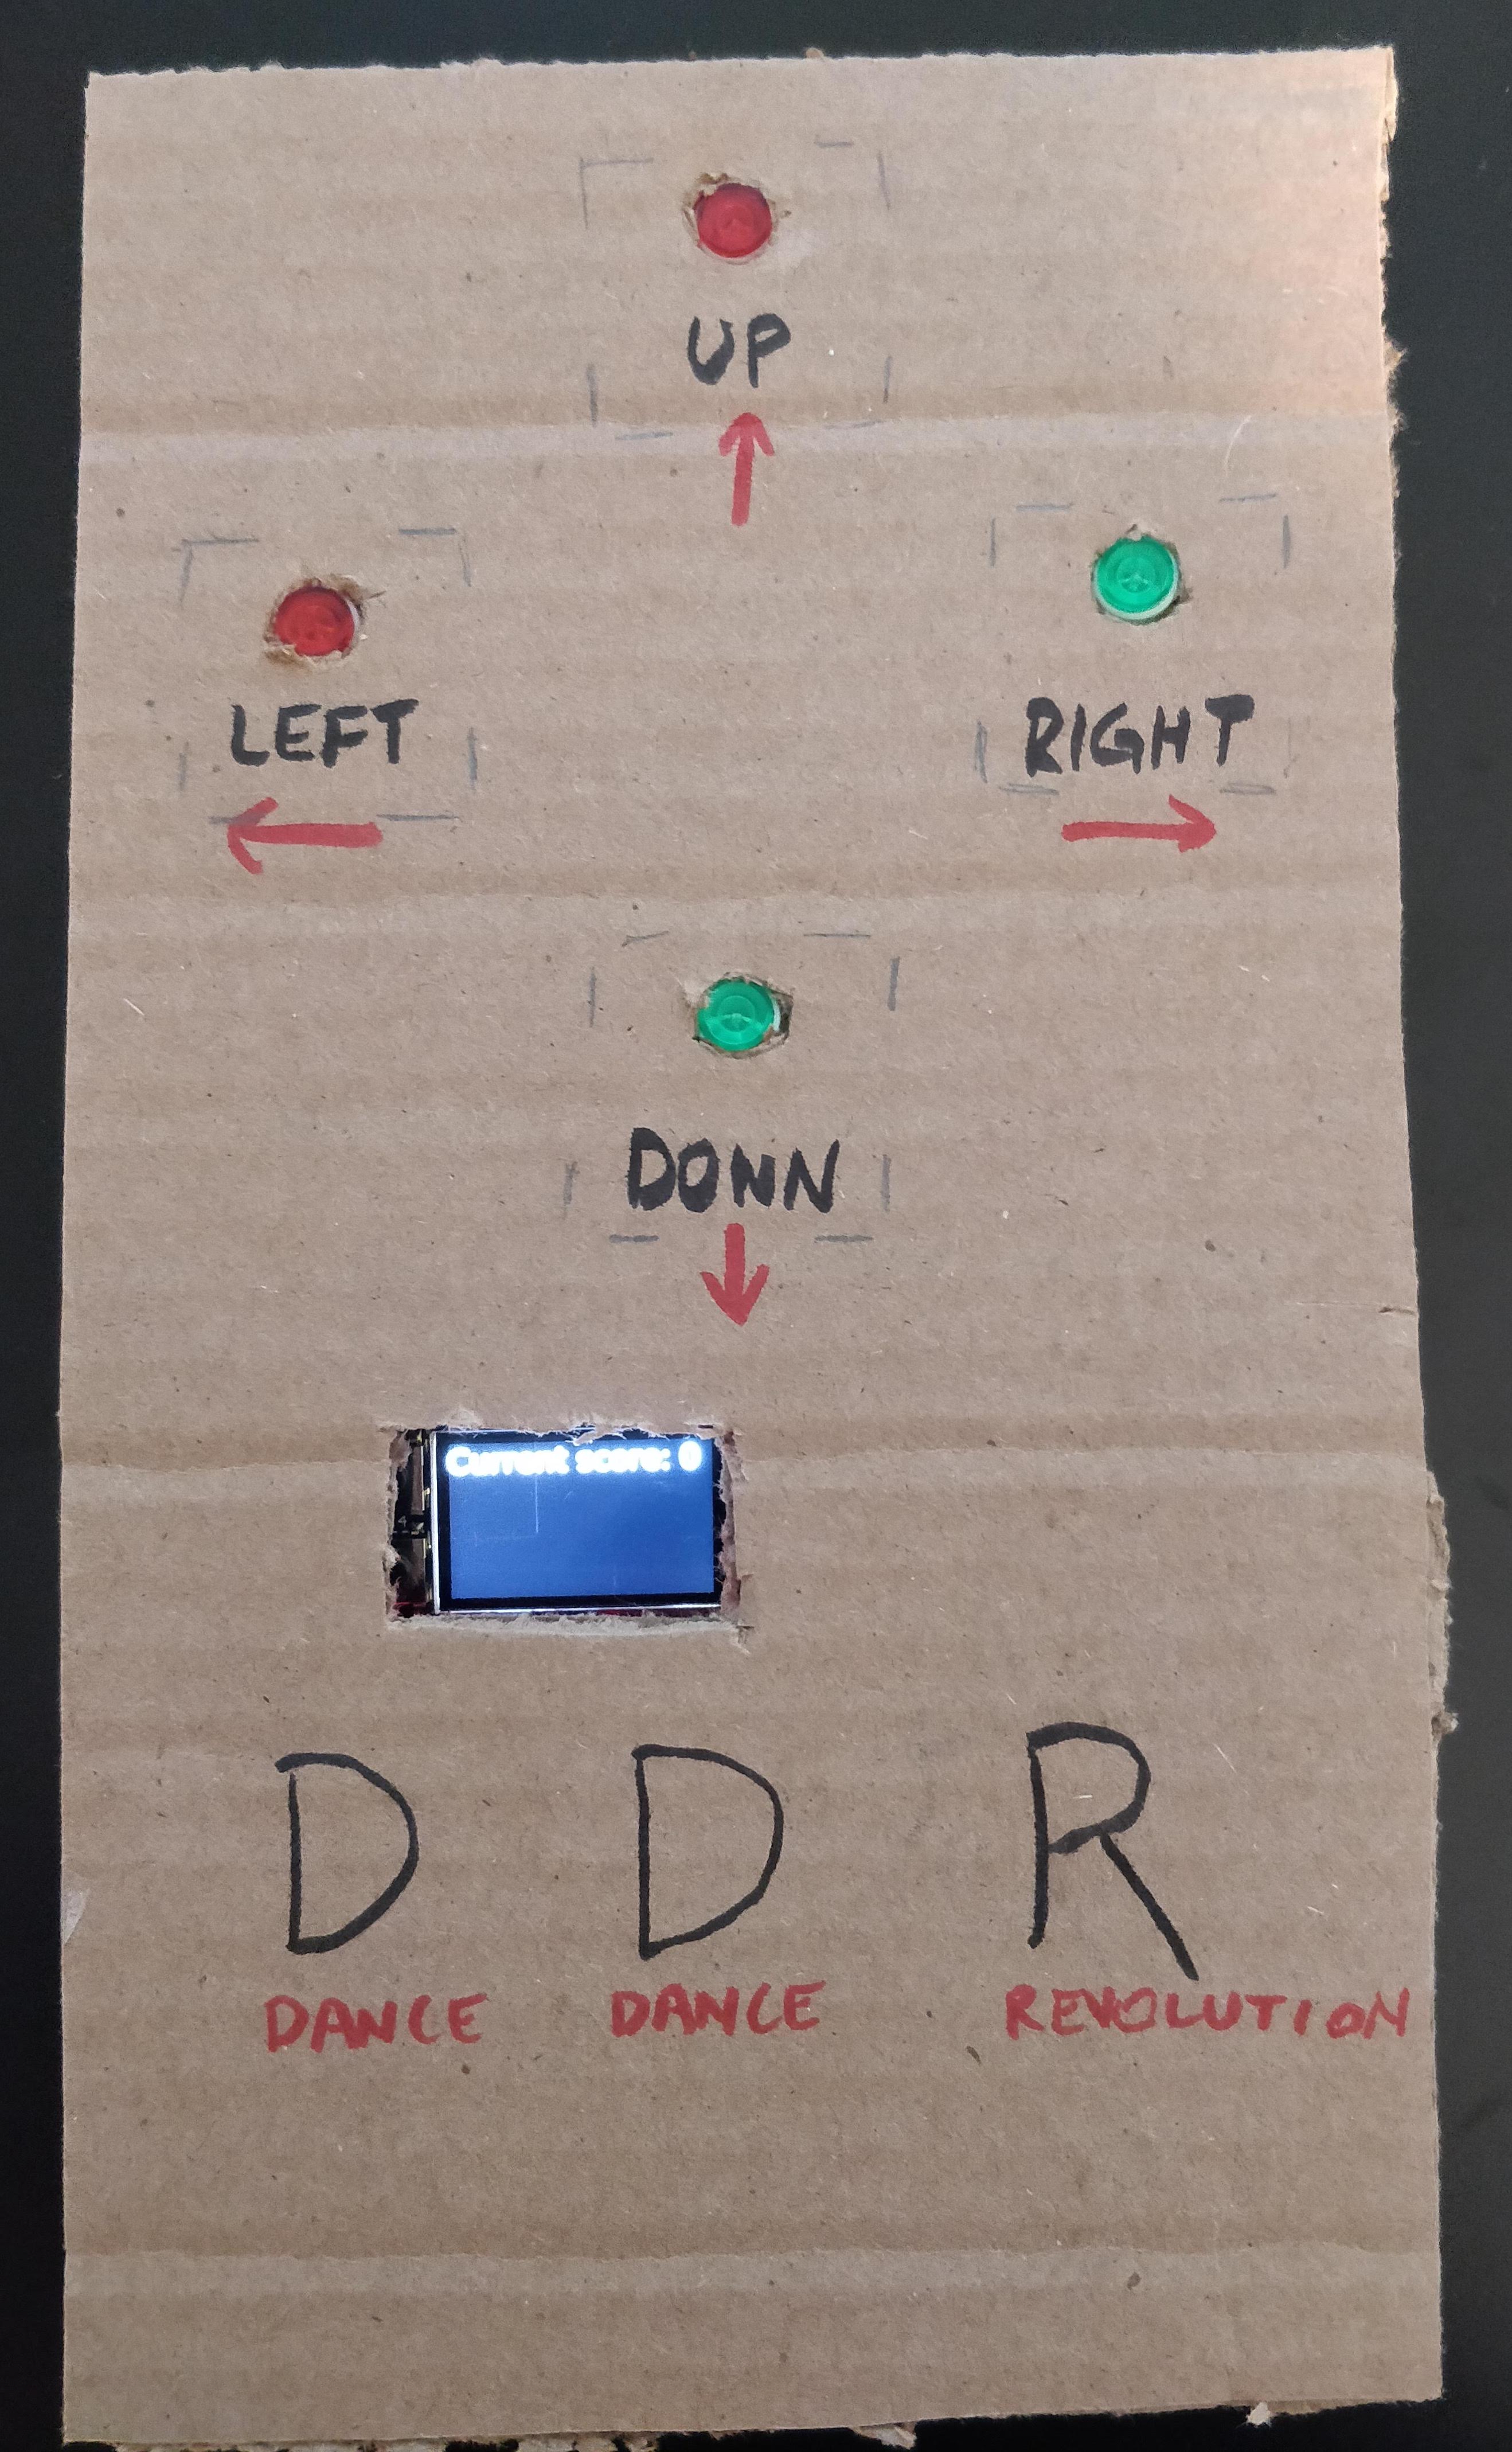 UP
LEFT
RIGHT
DOWN
Current score: 0
D D R
DANCE DANCE REVOLUTION